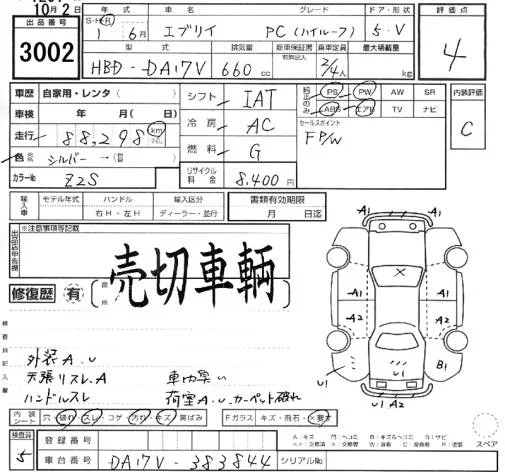 10月2日
出品番号
3002
年式 車名 グレード ドア・形状
S・H・R 1年 6月 エブリイ PC (ハイルーフ) 5・V
型式 排気量 新車保証書 乗車定員 最大積載量
HBD-DA17V 660cc 2/4人 kg
評価点
4
車歴 自家用・レンタ( )
車検 年 月( 日)
走行 88,298 km
色 シルバー →( )
カラーNo Z2S
シフト IAT
冷房 AC
燃料 G
リサイクル料金 8,400円
純正のみ PS PW AW SR
ABS エアB TV ナビ
セールスポイント
F P/W
内装評価
C
輸入車 モデル年式 ハンドル 輸入区分
右H・左H ディーラー・並行
書類有効期限
月 日迄
※注意事項等記載
売切車輌
修復歴 有
検査員記入欄
外装A.U
天張リスレ.A
ハンドルスレ
車内臭い
荷室A.U.カーペット破れ
A1 A1
X
A1 A2
A2 A2
U1 B1
U1 A2
内装シート 穴・破れ・スレ・コゲ・汚れ・キズ・黄ばみ
Fガラス キズ・飛石・×要す
検査員
5
登録番号
車台番号 DA17V-383844 シリアルNo.
A:キズ
スペア